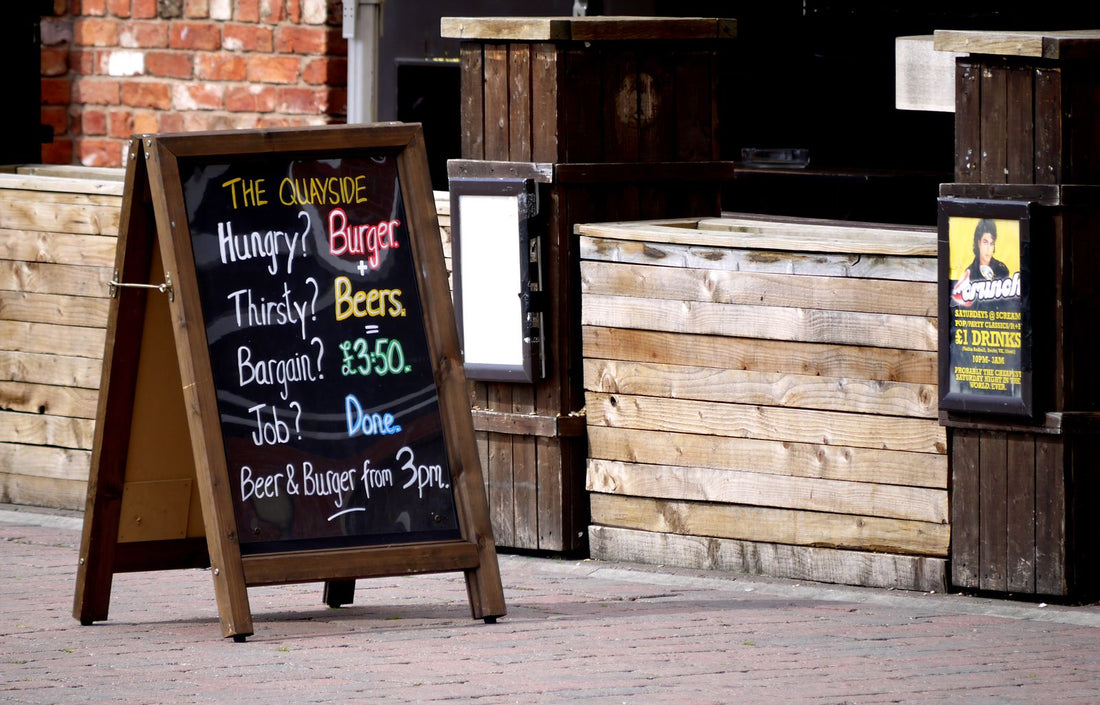 THE QUAYSIDE
Hungry? Burger.
+
Thirsty? Beers.
=
Bargain? £3:50.
Job? Done.
Beer & Burger from 3pm.
crunch
SATURDAYS @ SCREAM
POP/PARTY CLASSICS/R+B
£1 DRINKS
10PM- 3AM
PROBABLY THE CHEAPEST
SATURDAY NIGHT IN THE
WORLD. EVER.